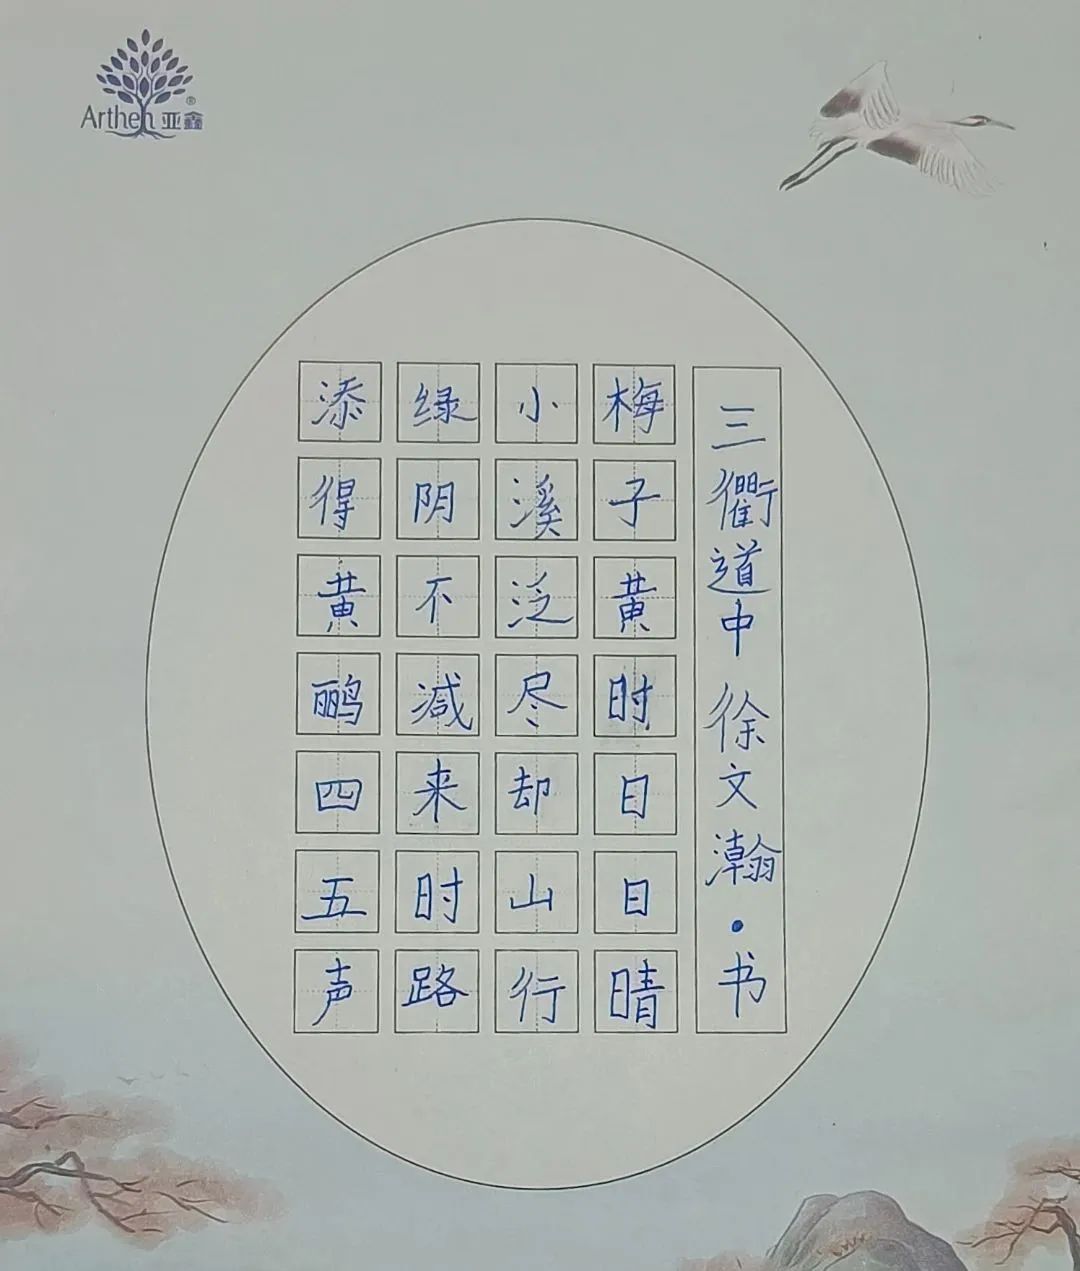 Arthen 亚鑫®
三衢道中 徐文瀚·书
梅子黄时日日晴
小溪泛尽却山行
绿阴不减来时路
添得黄鹂四五声